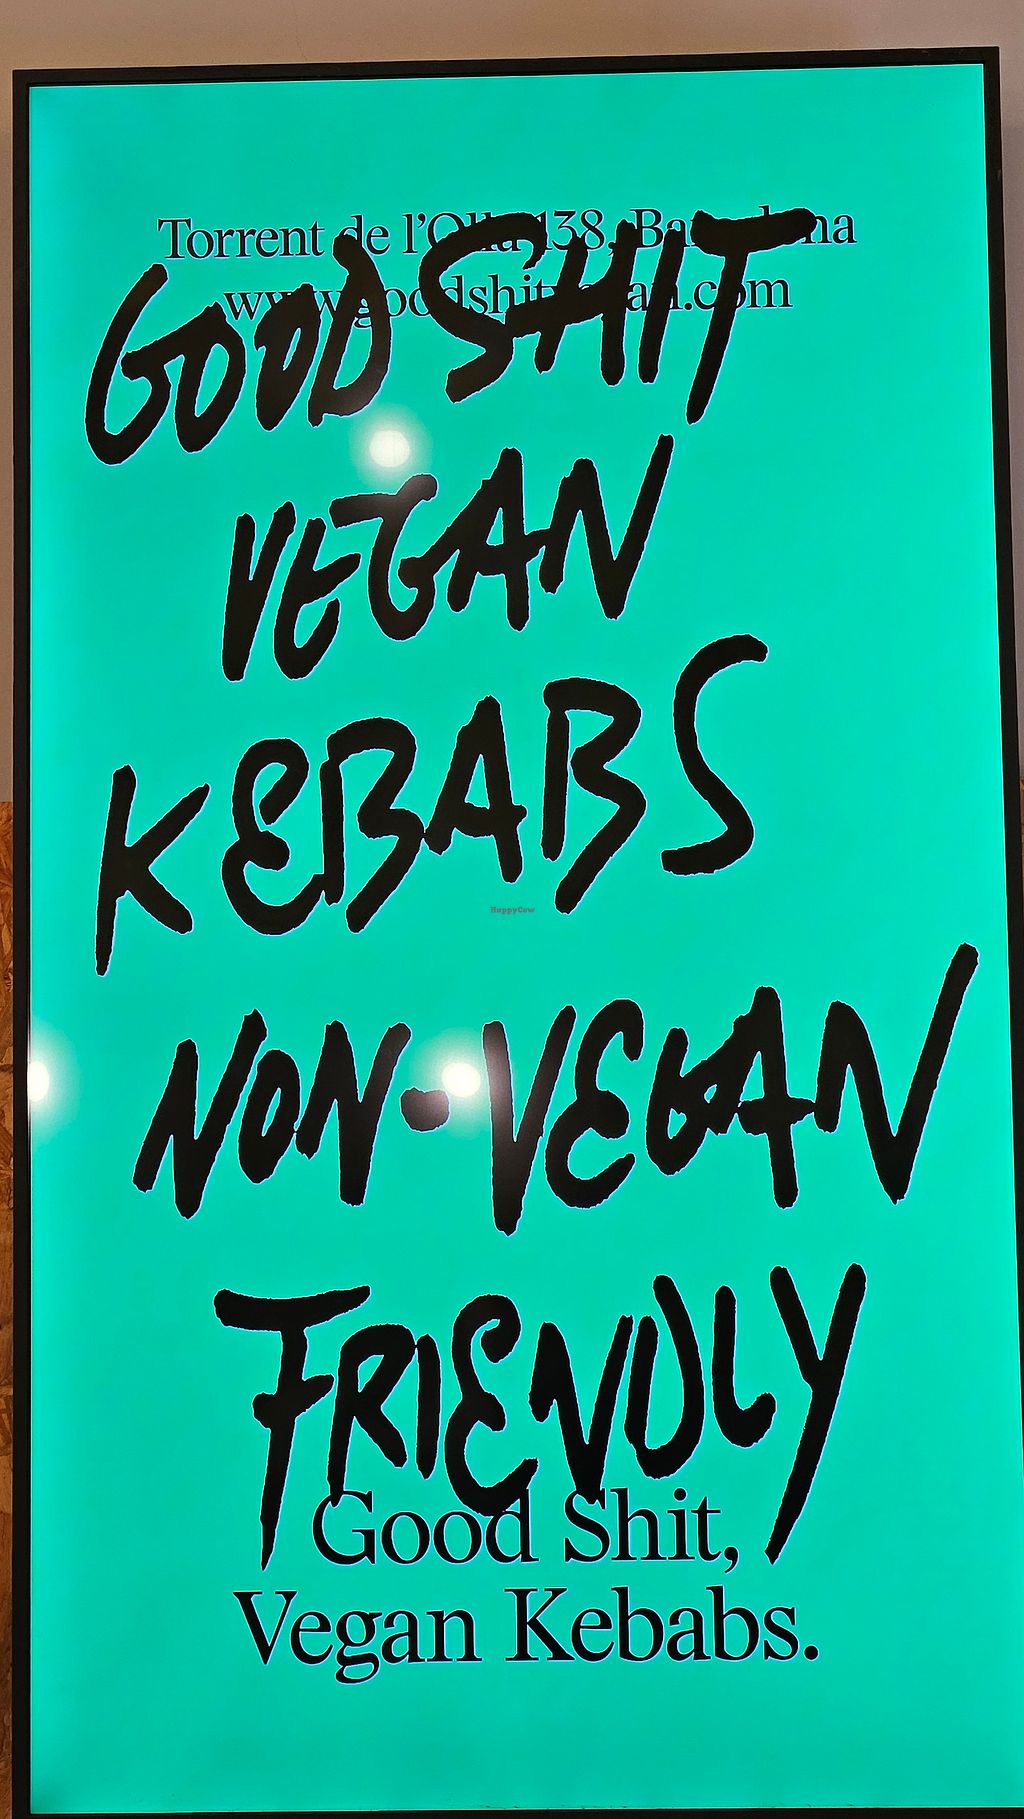 Torrent de l'Olla 138, Barcelona
www.goodshitvegan.com
GOOD SHIT
VEGAN
KEBABS
HappyCow
NON-VEGAN
FRIENDLY
Good Shit,
Vegan Kebabs.